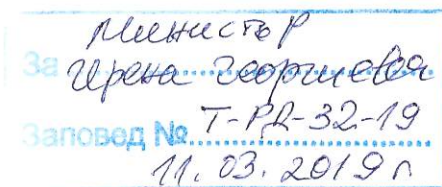 Министър
За Ирена Георгиева
Заповед № Т-РД-32-19
11.03.2019 г